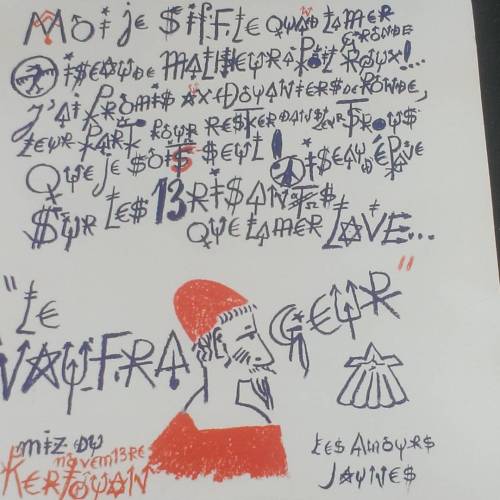 MOi je SiFFLE QUAND LA MER
GRONDE
OiSEAU DE MALHEUR À POiL ROUX!...
J'Ai PROMiS AUX DOUANiERS DE RONDE,
LEUR PART POUR RESTER DANS LEUR TROUS
QUE je SOiS SEUL! OiSEAU D'ÉPAVE
SUR LES 13RiSANTS
QUE LA MER LAVE...
"LE
NAUFRAGEUR"
miz DU
novem13RE
LES AMOURS
JAUNES